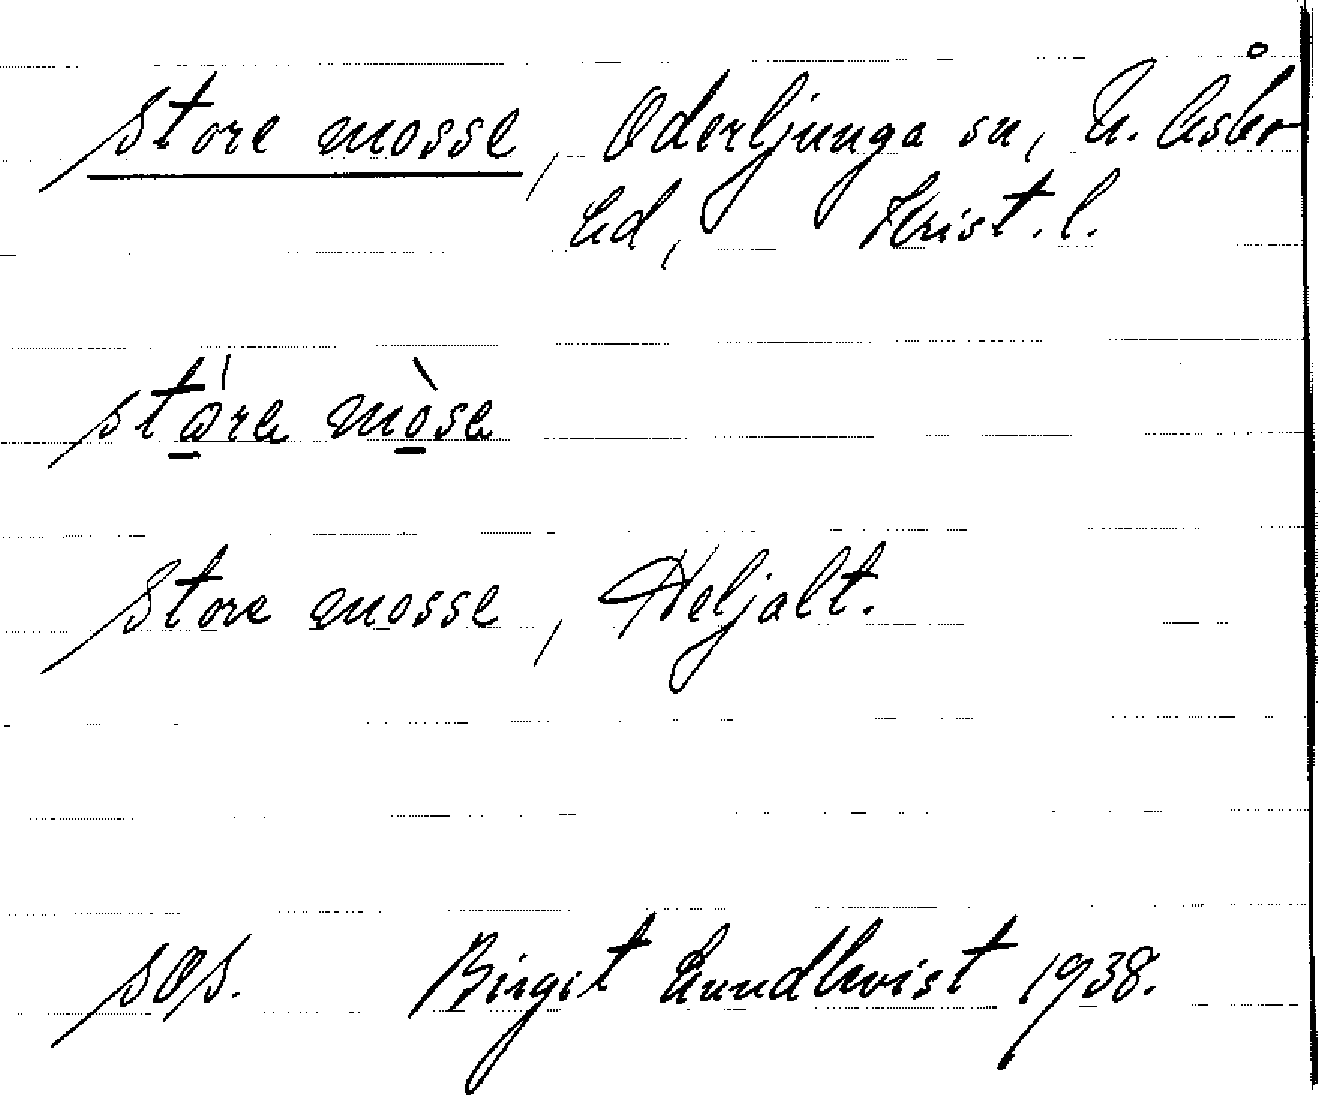 Store mosse, Oderljunga sn, N. Åsbo
hd, Krist. l.
Store mosse, Heljalt.
Birgit Lundkvist 1938.